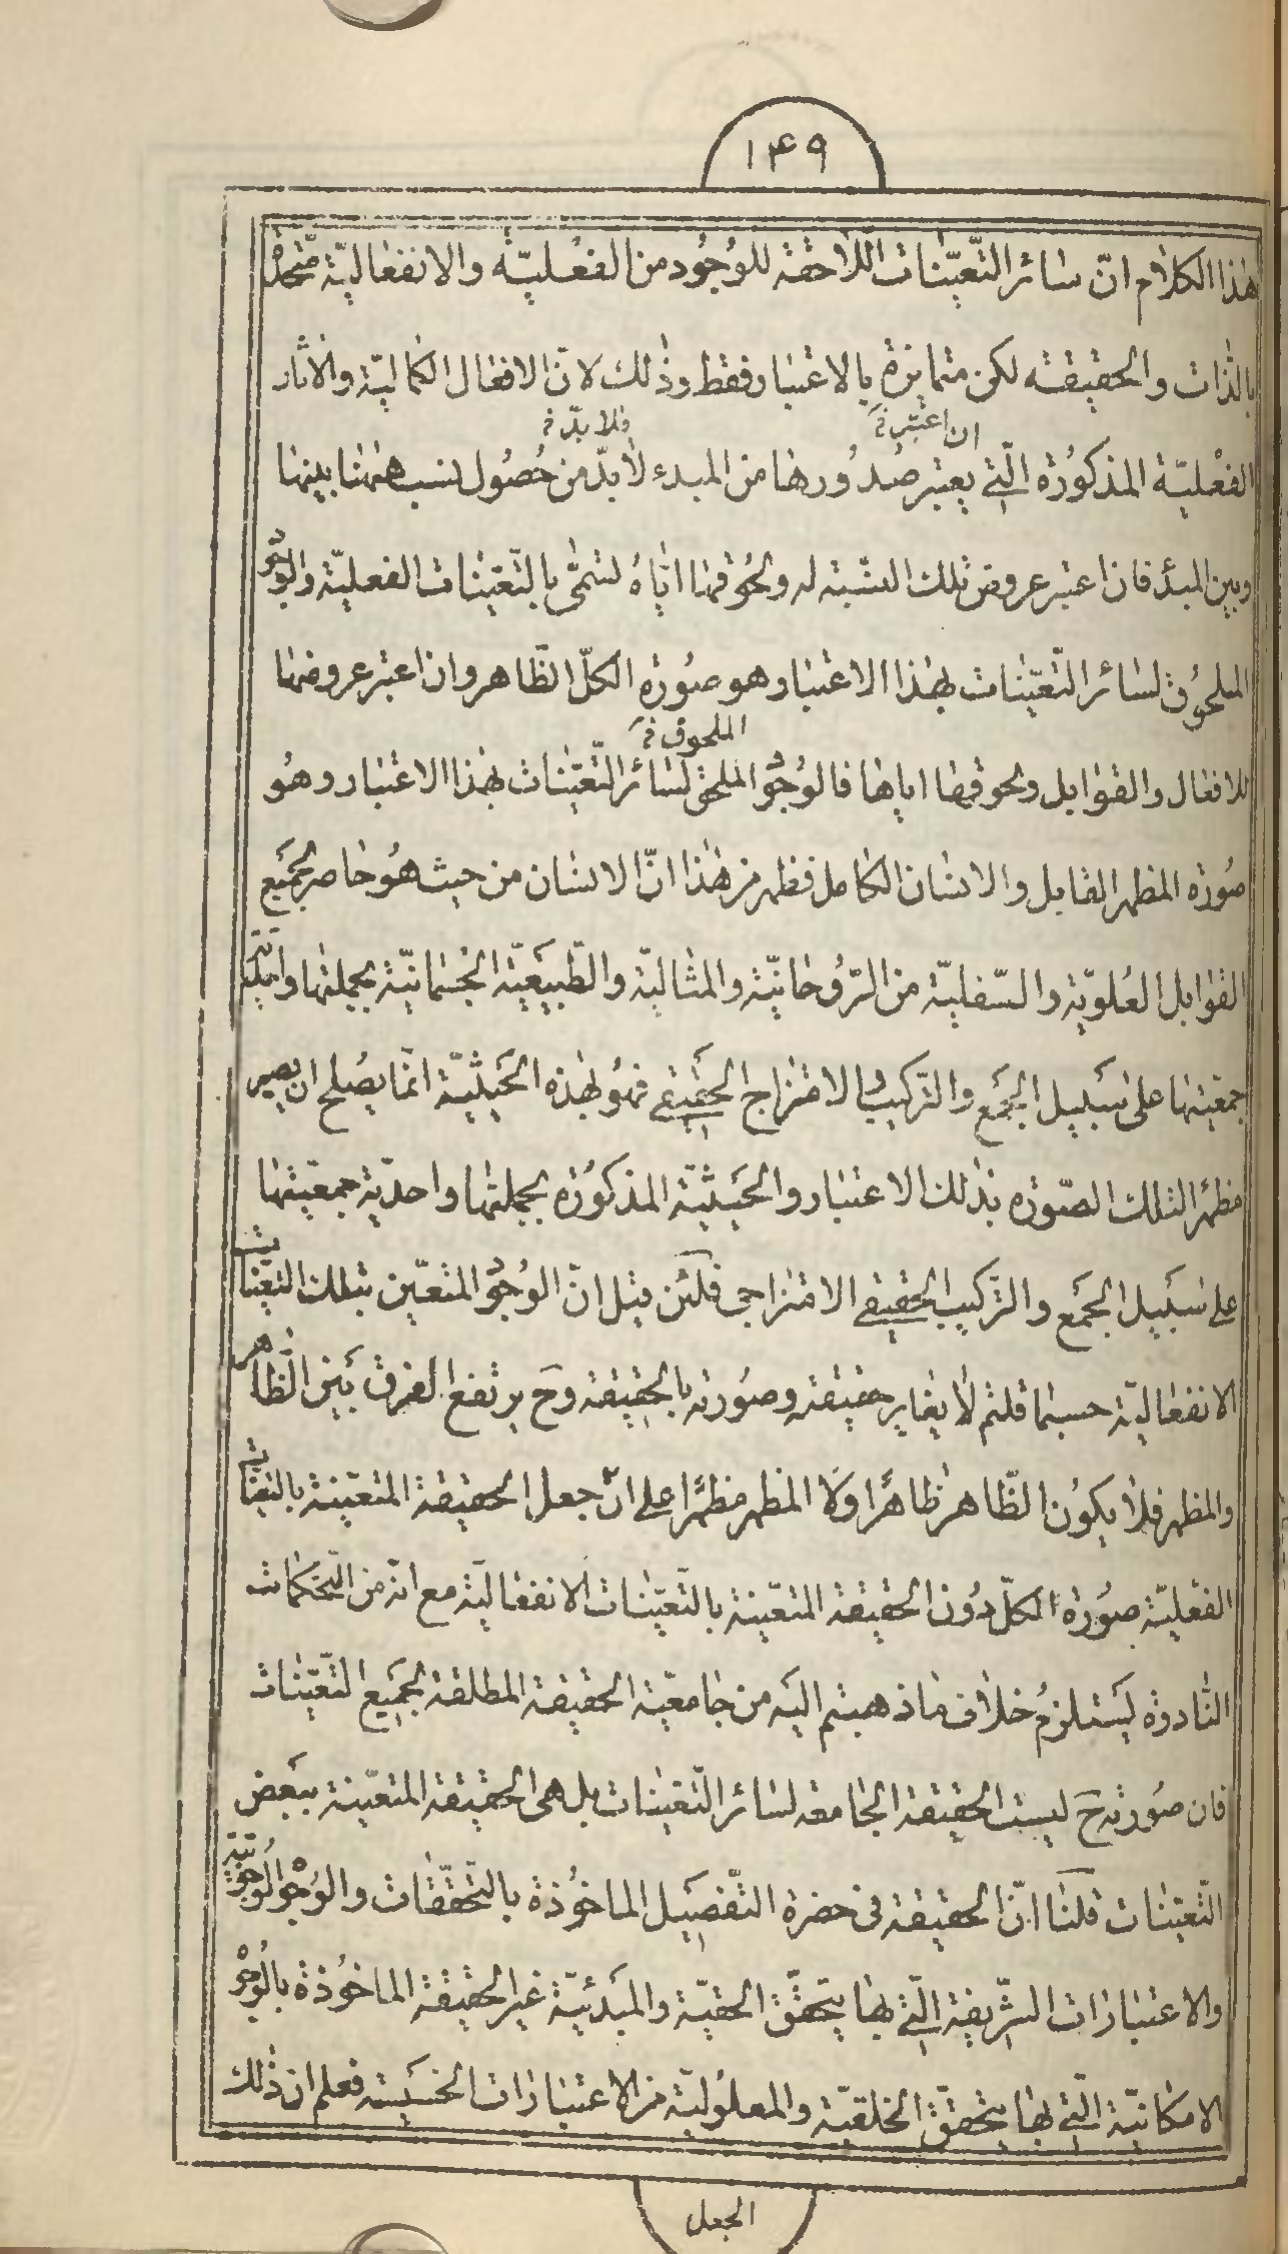 ١٤٩
هذا الكلام انّ سائر التّعيّنات اللّاحقة للوُجُود من الفعْليّة والانفعاليّة متّحدة
بالذات والحقيقة لكن متمايزة بالاعتبار فقط وذٰلك لانّ الافعال الكماليّة والآثار
ان اعتبر خ فلا بدّ خ
الفعْليّة المذكوُرة الّتي يعتبر صُدُورها من المبدء لابدّ من حُصُول نسب ههنا بينها
وبين المبدُء فان اعتبر عروض تلك النسّبة له ولحُوقها ايّاهُ لتسمّى بالتّعيّنات الفعليّة والوجُو
الملحوُق لسائر التّعيّنات بهٰذا الاعتبار وهو صُورة الكلّ الظّاهر وان اعتبر عروضها
الملحوق خ
للافعال والقوابل ولحوقها اياها فالوُجُو الملحق لسائر التّعيّنات بهٰذا الاعتبار وهُو
صُورة المظهر القابل والانسان الكامل فظهر من هٰذا انّ الانسان من حيث هُو حاصر لجميَع
القوابل العُلويّة والسّفليّة من الرّوُحانيّة والمثاليّة والطّبيعَيّة الجُسمانيّة بجملتها واحديّة
جمعّيتها على سَبيل الجمَع والتّركيبُ والامتزاج الحقَيقي فهوُ بهٰذه الحَيثيّة انمّا يصُلح ان يصير
مظهرًا لتلك الصّورة بذٰلك الاعتبار والحَيثيّة المذكوُرة بجملتها واحديّة جمعّيتها
على سَبيل الجمَع والتّركيب الحقيقي الامتزاجي فلئن قيل انّ الوُجُو المتعيّن بتلك التعيّنات
الانفعاليّة حسبما قلتم لا يغاير حقيقته وصوُرته بالحقيقة وحَ يرتفع الفرق بيَن الظّاهر
والمظهر فلا يكوُن الظّاهر ظاهرًا ولا المظهر مظهرًا على انّ جعل الحقيقة المتعيّنة بالتعيّنات
الفعْليّة صوُرة الكلّ دوُن الحقيقة المتعّينة بالتّعيّنات الانفعاليّة مع انّه من التّحكمات
النّادرة يَستلزمُ خلاف ماذهبتم اليَه من جامعيّة الحقيقة المطلقة لجميَع التّعيّنات
فان صوُرته حَ ليست الحقيقة الجامعة لسائر التّعينات بل هى الحقيقة المتعيّنة ببَعض
التّعيّنات قلنا انّ الحقيقة فى حضرة التّفصيَل الماخوُذة بالتّحقّقات والوُجُو الوُجوُبيّة
والاعتبارات الشّريفة الّتي بها يتحقّق الحقيّة والمبَدئيّة غيَر الحقيقة الماخوُذة بالوُجوُ
الامكانيّة الّتي بها يتحقّق الخلقيّة والمعلوُليّة من الاعتبارات الخسَيسة فعلم ان ذٰلك
الجعل